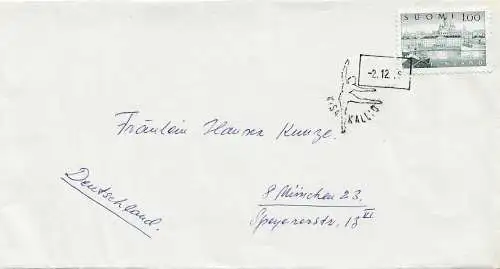 SUOMI 1.00
FINLAND
-2.12.
KALLIO
Fräulein Hanna Kunze.
Deutschland.
8 München 23.
Speyererstr. 13 VI